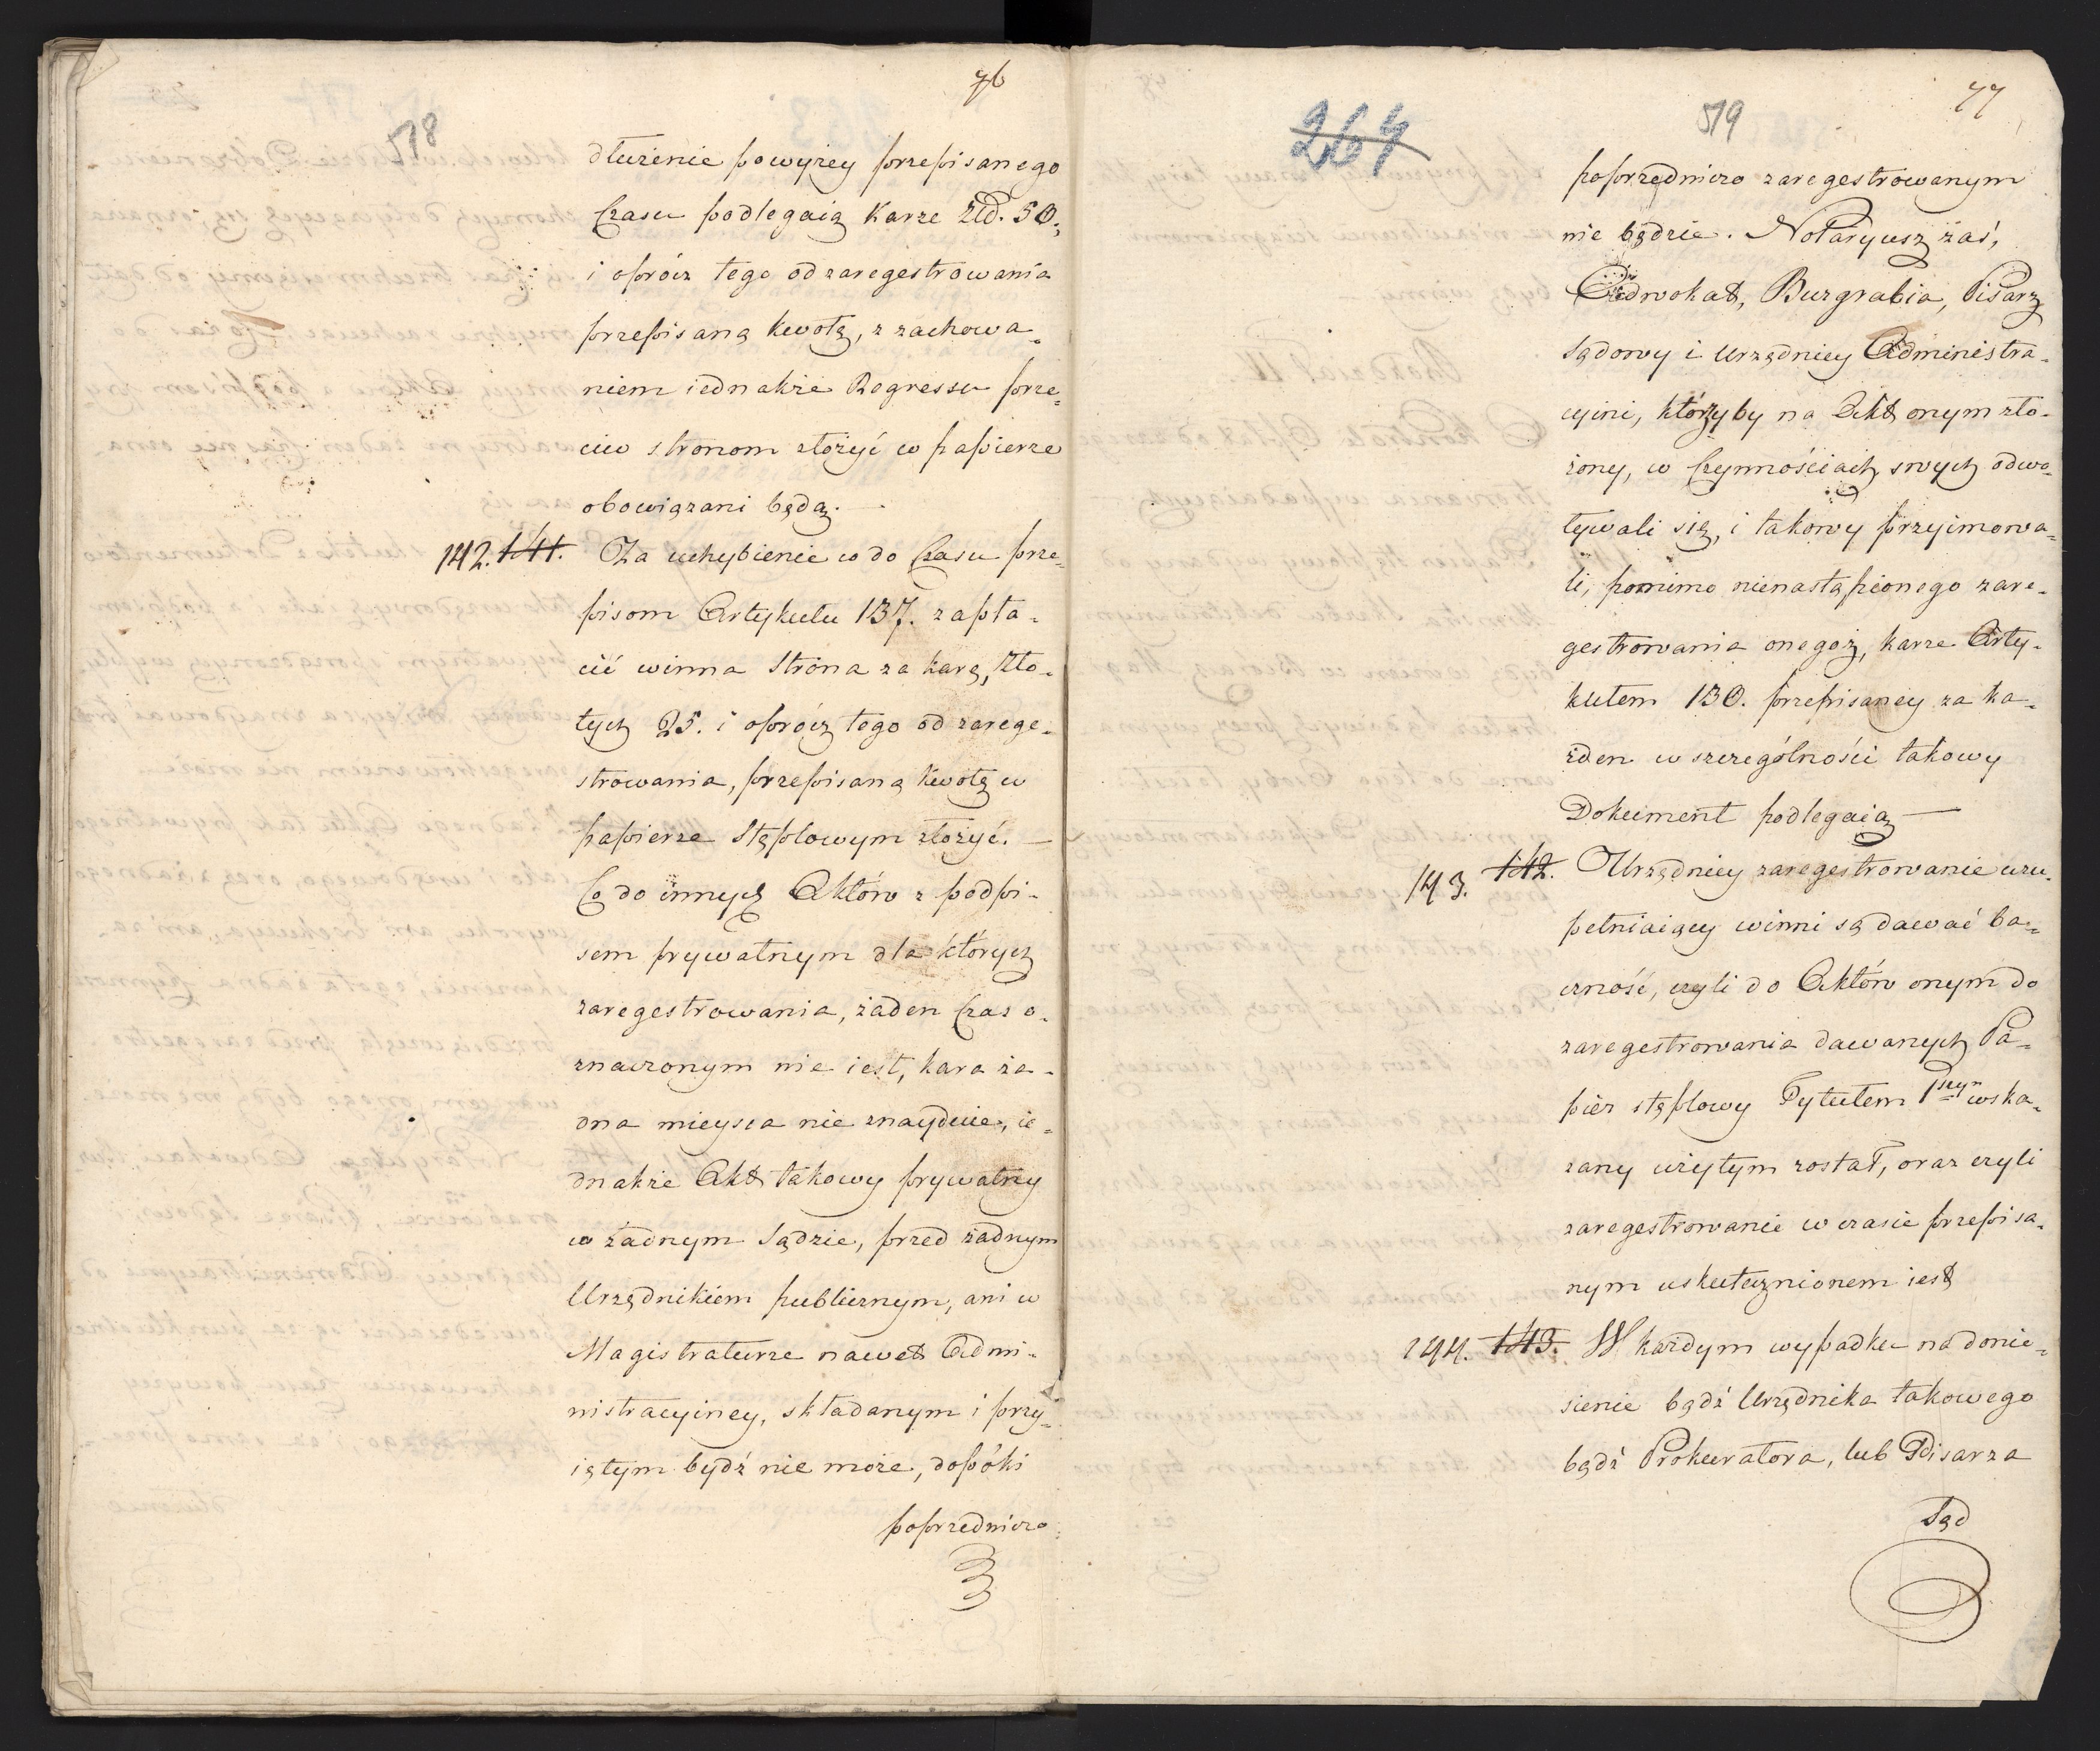 76
518
dłużenie powyżey przepisanego
Czasu podlegaią Karze Złd. 50.,
i oprócz tego od zaregestrowania
przepisaną kwotę, z zachowa-
niem iednakże Regressu prze-
ciw stronom złożyć w papierze
obowiązani będą. —
142. 141. Za uchybienie co do Czasu prze-
pisom Artykułu 137. zapła-
cić winna Strona za karę, Zło-
tych 25. i oprócz tego od zarege-
strowania, przepisaną kwotę w
papierze Stęplowym złożyć. —
Co do innych Aktów z podpi-
sem prywatnym dla których
zaregestrowania, żaden Czas o-
znaczonym nie iest, kara ża-
dna mieysca nie znayduie, ie-
dnakże Akt takowy prywatny
w żadnym Sądzie, przed żadnym
Urzędnikiem publicznym, ani w
Magistraturze nawet Admi-
nistracyiney, składanym i przy-
iętym bydź nie może, dopóki
poprzedniczo
77
519
264
poprzedniczo zaregestrowanym
nie będzie. Notaryusz zaś,
Adwokat, Burgrabia, Pisarz
Sądowy i Urzędnicy Administra-
cyini, którzyby na Akt onym zło-
żony, w Czynnościach swych odwo-
ływali się, i takowy przyimowa-
li, pomimo nienastąpionego zare-
gestrowania onegoż, karze Arty-
kułem 130. przepisaney za ka-
żden w szczególności takowy
Dokument podlegaią —
143. 142. Urzędnicy zaregestrowanie uzu-
pełniaiący winni są dawać ba-
czność, czyli do Aktów onym do
zaregestrowania dawanych Pa-
pier stęplowy Tytułem 1szym wska-
zany użytym został, oraz czyli
zaregestrowanie w czasie przepisa-
nym uskutecznionem iest
144. 143. W każdym wypadku na donie-
sienie bądź Urzędnika takowego
bądź Prokuratora, lub Pisarza
Sąd